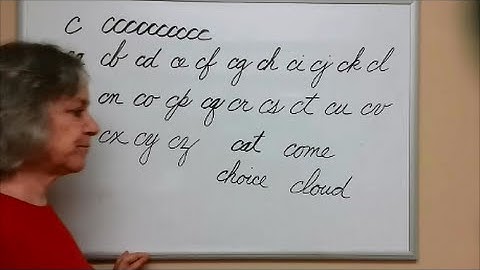 c cccccccccc
cb cd ce cf cg ch ci cj ck cl
cn co cp cq cr cs ct cu cv
cx cy cz cat come
choice cloud